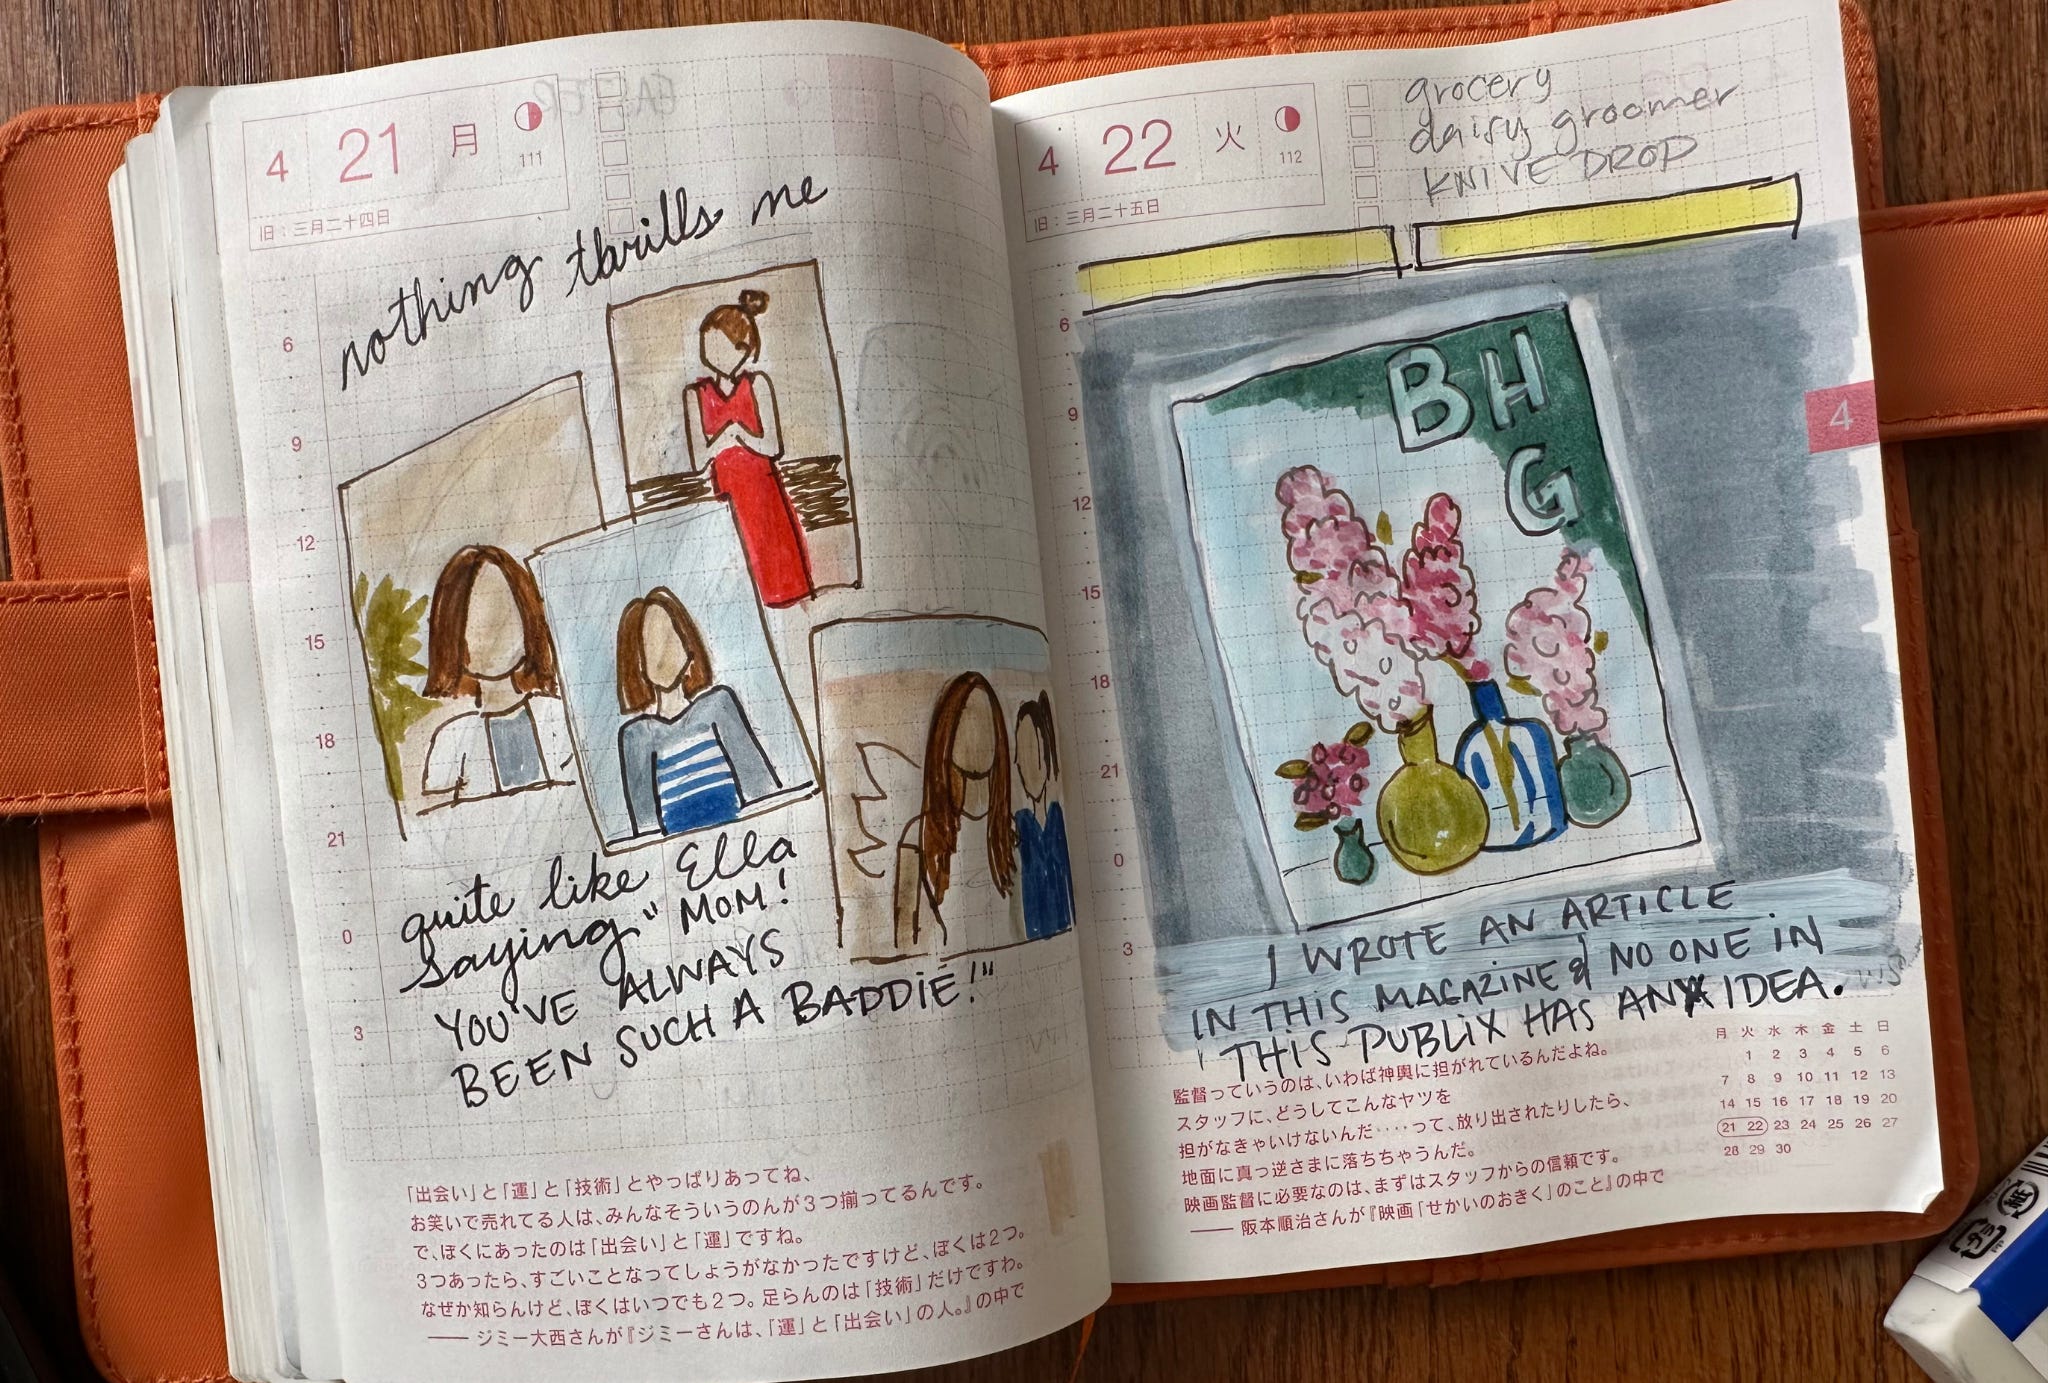 4 21 月
111
旧：三月二十四日
nothing thrills me
6
9
12
15
18
21
0
3
quite like Ella
saying "MOM!
YOU'VE ALWAYS
BEEN SUCH A BADDIE!"
「出会い」と「運」と「技術」とやっぱりあってね、
お笑いで売れてる人は、みんなそういうのんが3つ揃ってるんです。
で、ぼくにあったのは「出会い」と「運」ですね。
3つあったら、すごいことなってしょうがなかったですけど、ぼくは2つ。
なぜか知らんけど、ぼくはいつでも2つ。足らんのは「技術」だけですわ。
—— ジミー大西さんが『ジミーさんは、「運」と「出会い」の人。』の中で
4 22 火
112
旧：三月二十五日
grocery
daisy groomer
KNIVE DROP
6
9
12
15
18
21
0
3
4
BH
G
I WROTE AN ARTICLE
IN THIS MAGAZINE & NO ONE IN
THIS PUBLIX HAS ANY IDEA.
監督っていうのは、いわば神輿に担がれているんだよね。
スタッフに、どうしてこんなヤツを
担がなきゃいけないんだ‥‥って、放り出されたりしたら、
地面に真っ逆さまに落ちちゃうんだ。
映画監督に必要なのは、まずはスタッフからの信頼です。
—— 阪本順治さんが『映画「せかいのおきく」のこと』の中で
月 火 水 木 金 土 日
1 2 3 4 5 6
7 8 9 10 11 12 13
14 15 16 17 18 19 20
21 22 23 24 25 26 27
28 29 30